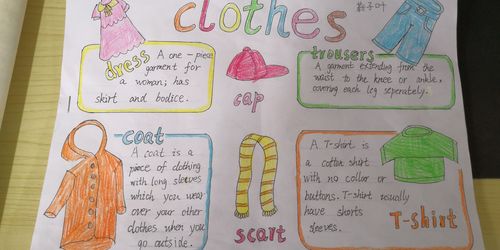 clothes
韩子叶
dress
A one-piece
garment for
a woman; has
skirt and bodice.
cap
trousers
A garment extending from the
waist to the knee or ankle,
covering each leg seperately.
coat
A coat is a
piece of clothing
with long sleeves
which you wear
over your other
clothes when you
go outside.
scart
A T-shirt is
a cotton shirt
with no collar or
buttons. T-shirt usually
have shorts
sleeves.
T-shirt